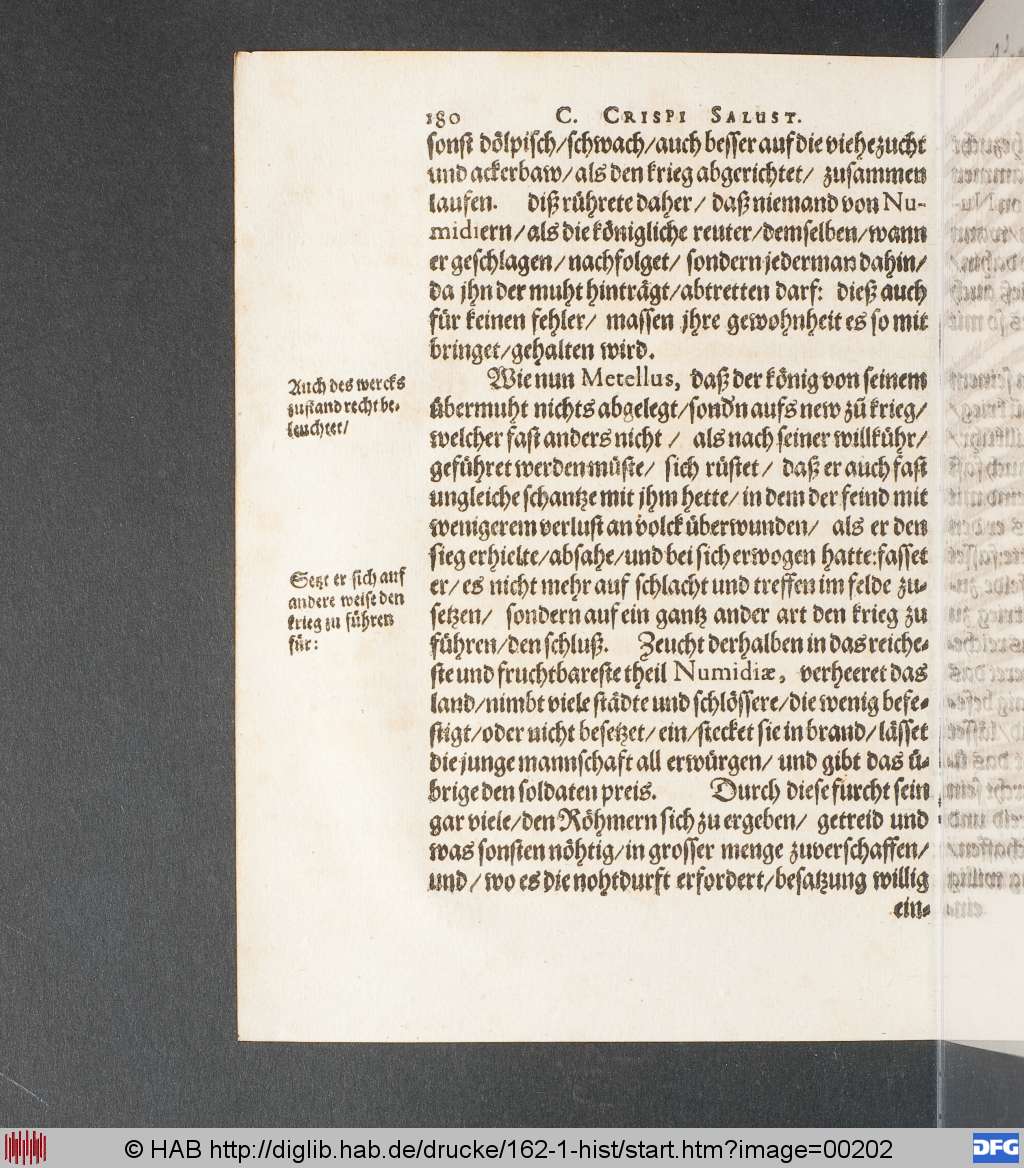 180 C. CRISPI SALUST.
sonst dölpisch/schwach/auch besser auf die viehezucht
und ackerbaw/als den krieg abgerichtet/ zusammen
laufen. diß rührete daher/ daß niemand von Nu-
midiern/als die königliche reuter/demselben/wann
er geschlagen/nachfolget/ sondern jederman dahin/
da jhn der muht hinträgt/abtretten darf: dieß auch
für keinen fehler/ massen jhre gewohnheit es so mit
bringet/gehalten wird.
Wie nun Metellus, daß der könig von seinem
übermuht nichts abgelegt/sond'n aufs new zū krieg/
welcher fast anders nicht / als nach seiner willkühr/
geführet werden müste/ sich rüstet/ daß er auch fast
ungleiche schantze mit jhm hette/in dem der feind mit
wenigerem verlust an volck überwunden/ als er den
sieg erhielte/absahe/und bei sich erwogen hatte:fasset
er/es nicht mehr auf schlacht und treffen im felde zu-
setzen/ sondern auf ein gantz ander art den krieg zu
führen/den schluß. Zeucht derhalben in das reiche-
ste und fruchtbareste theil Numidiæ, verheeret das
land/nimbt viele städte und schlössere/die wenig befe-
stigt/oder nicht besetzet/ein/stecket sie in brand/lässet
die junge mannschaft all erwürgen/ und gibt das ü-
brige den soldaten preis. Durch diese furcht sein
gar viele/den Röhmern sich zu ergeben/ getreid und
was sonsten nöhtig/in grosser menge zuverschaffen/
und/wo es die nohtdurft erfordert/besatzung willig
ein-
Auch des wercks
zustand recht be-
leuchtet/
Setzt er sich auf
andere weise den
krieg zu führen
für:
© HAB http://diglib.hab.de/drucke/162-1-hist/start.htm?image=00202
DFG